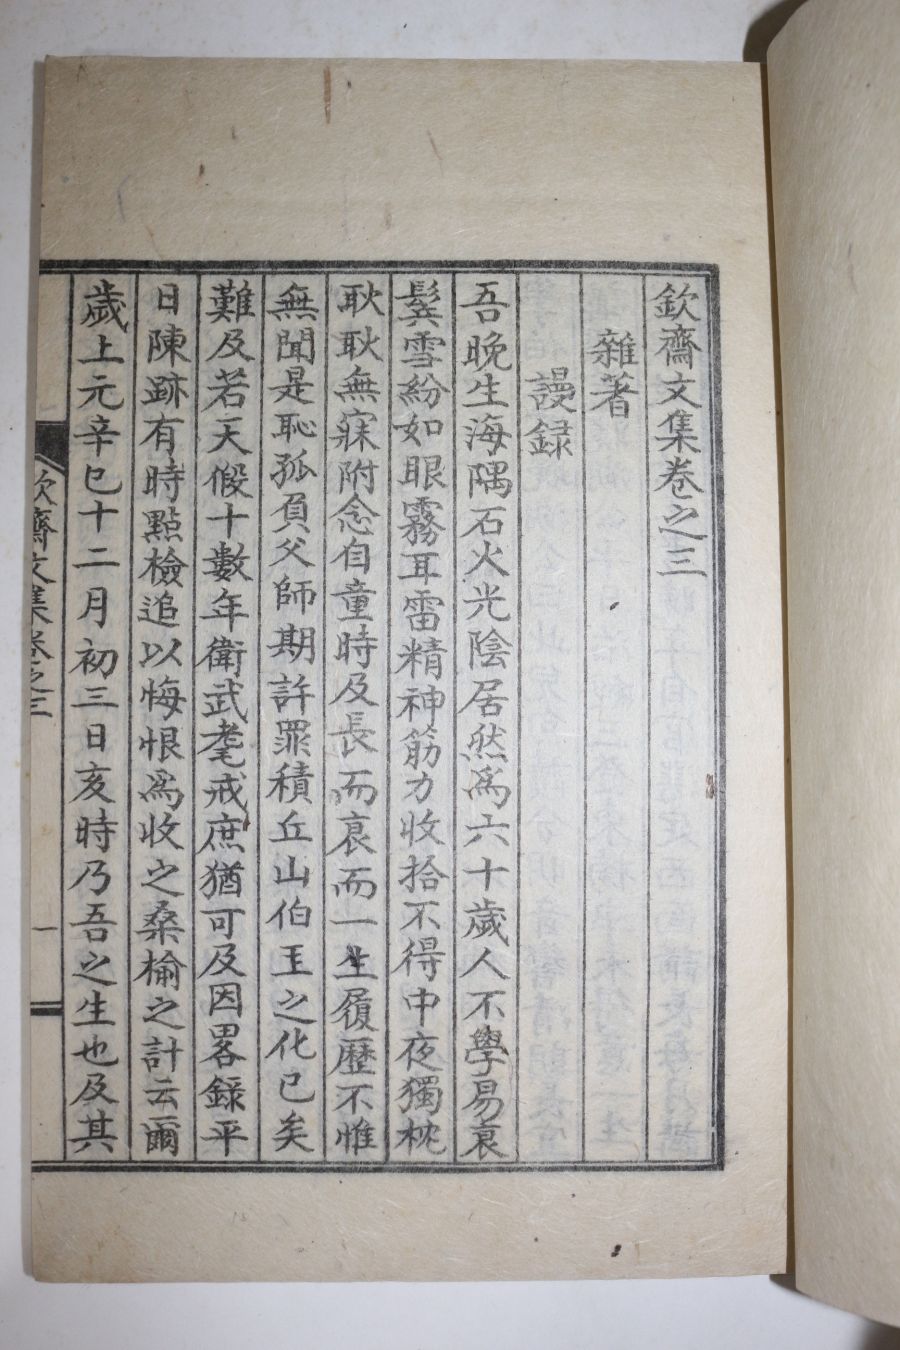 欽齋文集卷之三
雜著
謾録
吾晚生海隅石火光陰居然爲六十歲人不學易衰
鬓雪紛如眼霧耳雷精神筋力收拾不得中夜獨枕
耿耿無寐附念自童時及長而衰而一生履歷不惟
無聞是恥孤負父師期許罪積丘山伯玉之化已矣
難及若天假十數年衛武耄戒庶猶可及因畧錄平
日陳跡有時點檢追以悔恨爲收之桑榆之計云爾
歲上元辛巳十二月初三日亥時乃吾之生也及其
欽齋文集卷之三
一